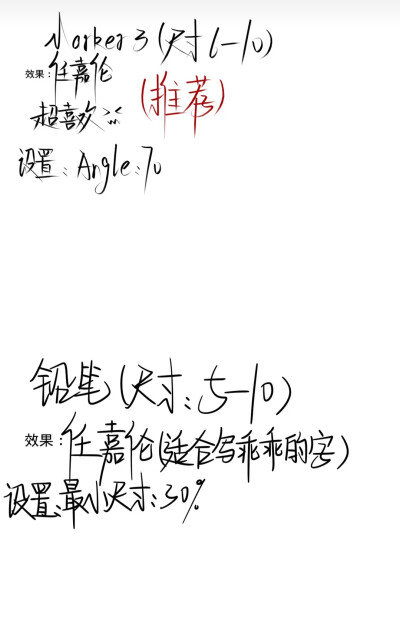 Morker 3(尺寸6-10)
效果：任嘉伦
(推荐)
超喜欢><
设置：Angle:70
铅笔(尺寸:5-10)
效果：任嘉伦(适合写乖乖的字)
设置:最小尺寸:30%